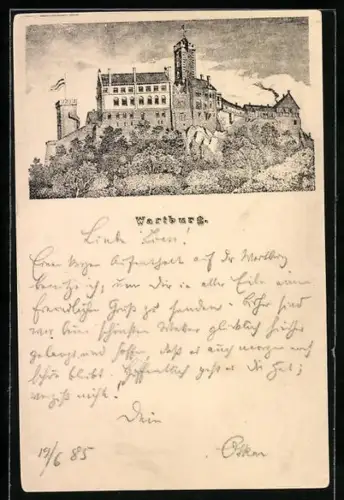 Wartburg.
Liebe
Einen kurzen Aufenthalt auf der Wartburg
benutze ich, um Dir in aller Eile einen
freundlichen Gruß zu senden. Bisher sind
wir beim schönsten Wetter glücklich hierher
gelangt und hoffen, daß es auch morgen noch
schön bleibt. Hoffentlich geht es Dir gut;
vergiß nicht
Dein
19/6 85 Oskar